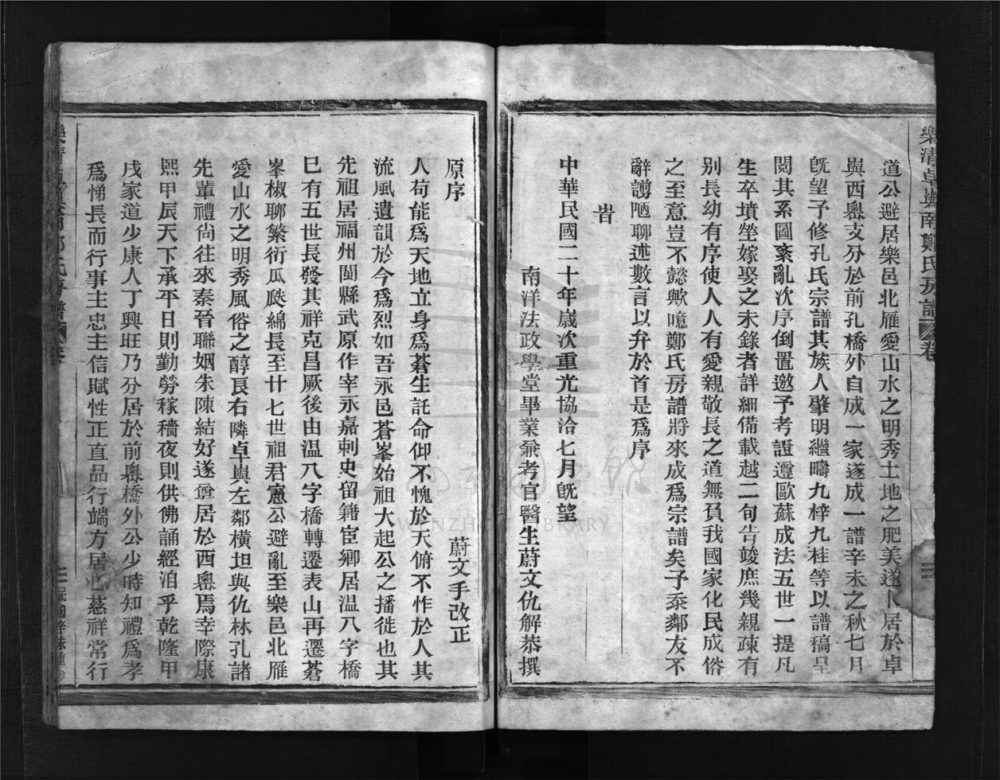 道公避居樂邑北雁愛山水之明秀土地之肥美遂卜居於卓
與西嶴支分於前孔橋外自成一家遂成一譜辛未之秋七月
旣望予修孔氏宗譜其族人肇明繼疇九梓九桂等以譜稿呈
閱其系圖紊亂次序倒置邀予考證遵歐蘇成法五世一提凡
生卒墳塋嫁娶之未錄者詳細備載越二旬告竣庶幾親疎有
別長幼有序使人人有愛親敬長之道無負我國家化民成俗
之至意豈不懿歟噫鄭氏房譜將來成爲宗譜矣予忝鄰友不
辭謭陋聊述數言以弁於首是爲序
旹
中華民國二十年歲次重光協洽七月旣望
南洋法政學堂畢業兼考官醫生蔚文仇解恭撰
原序
蔚文手改正
人苟能爲天地立身爲蒼生託命仰不愧於天俯不怍於人其
流風遺韻於今爲烈如吾永邑蒼峯始祖大起公之播徙也其
先祖居福州閩縣武原作宰永嘉刺史留籍宦鄉居溫八字橋
巳有五世長發其祥克昌厥後由溫八字橋轉遷表山再遷蒼
峯椒聊繁衍瓜瓞綿長至廿七世祖君憲公避亂至樂邑北雁
愛山水之明秀風俗之醇良右隣卓與左鄰橫坦與仇林孔諸
先董禮尙往來秦晉聯姻朱陳結好遂爰居於西嶴焉幸際康
熙甲辰天下承平日則勤勞稼穡夜則供佛誦經洎乎乾隆甲
戌家道少康人丁興旺乃分居於前嶴橋外公少時知禮爲孝
爲悌長而行事主忠主信賦性正直品行端方居心慈祥常行
WENZHOU LIBRARY